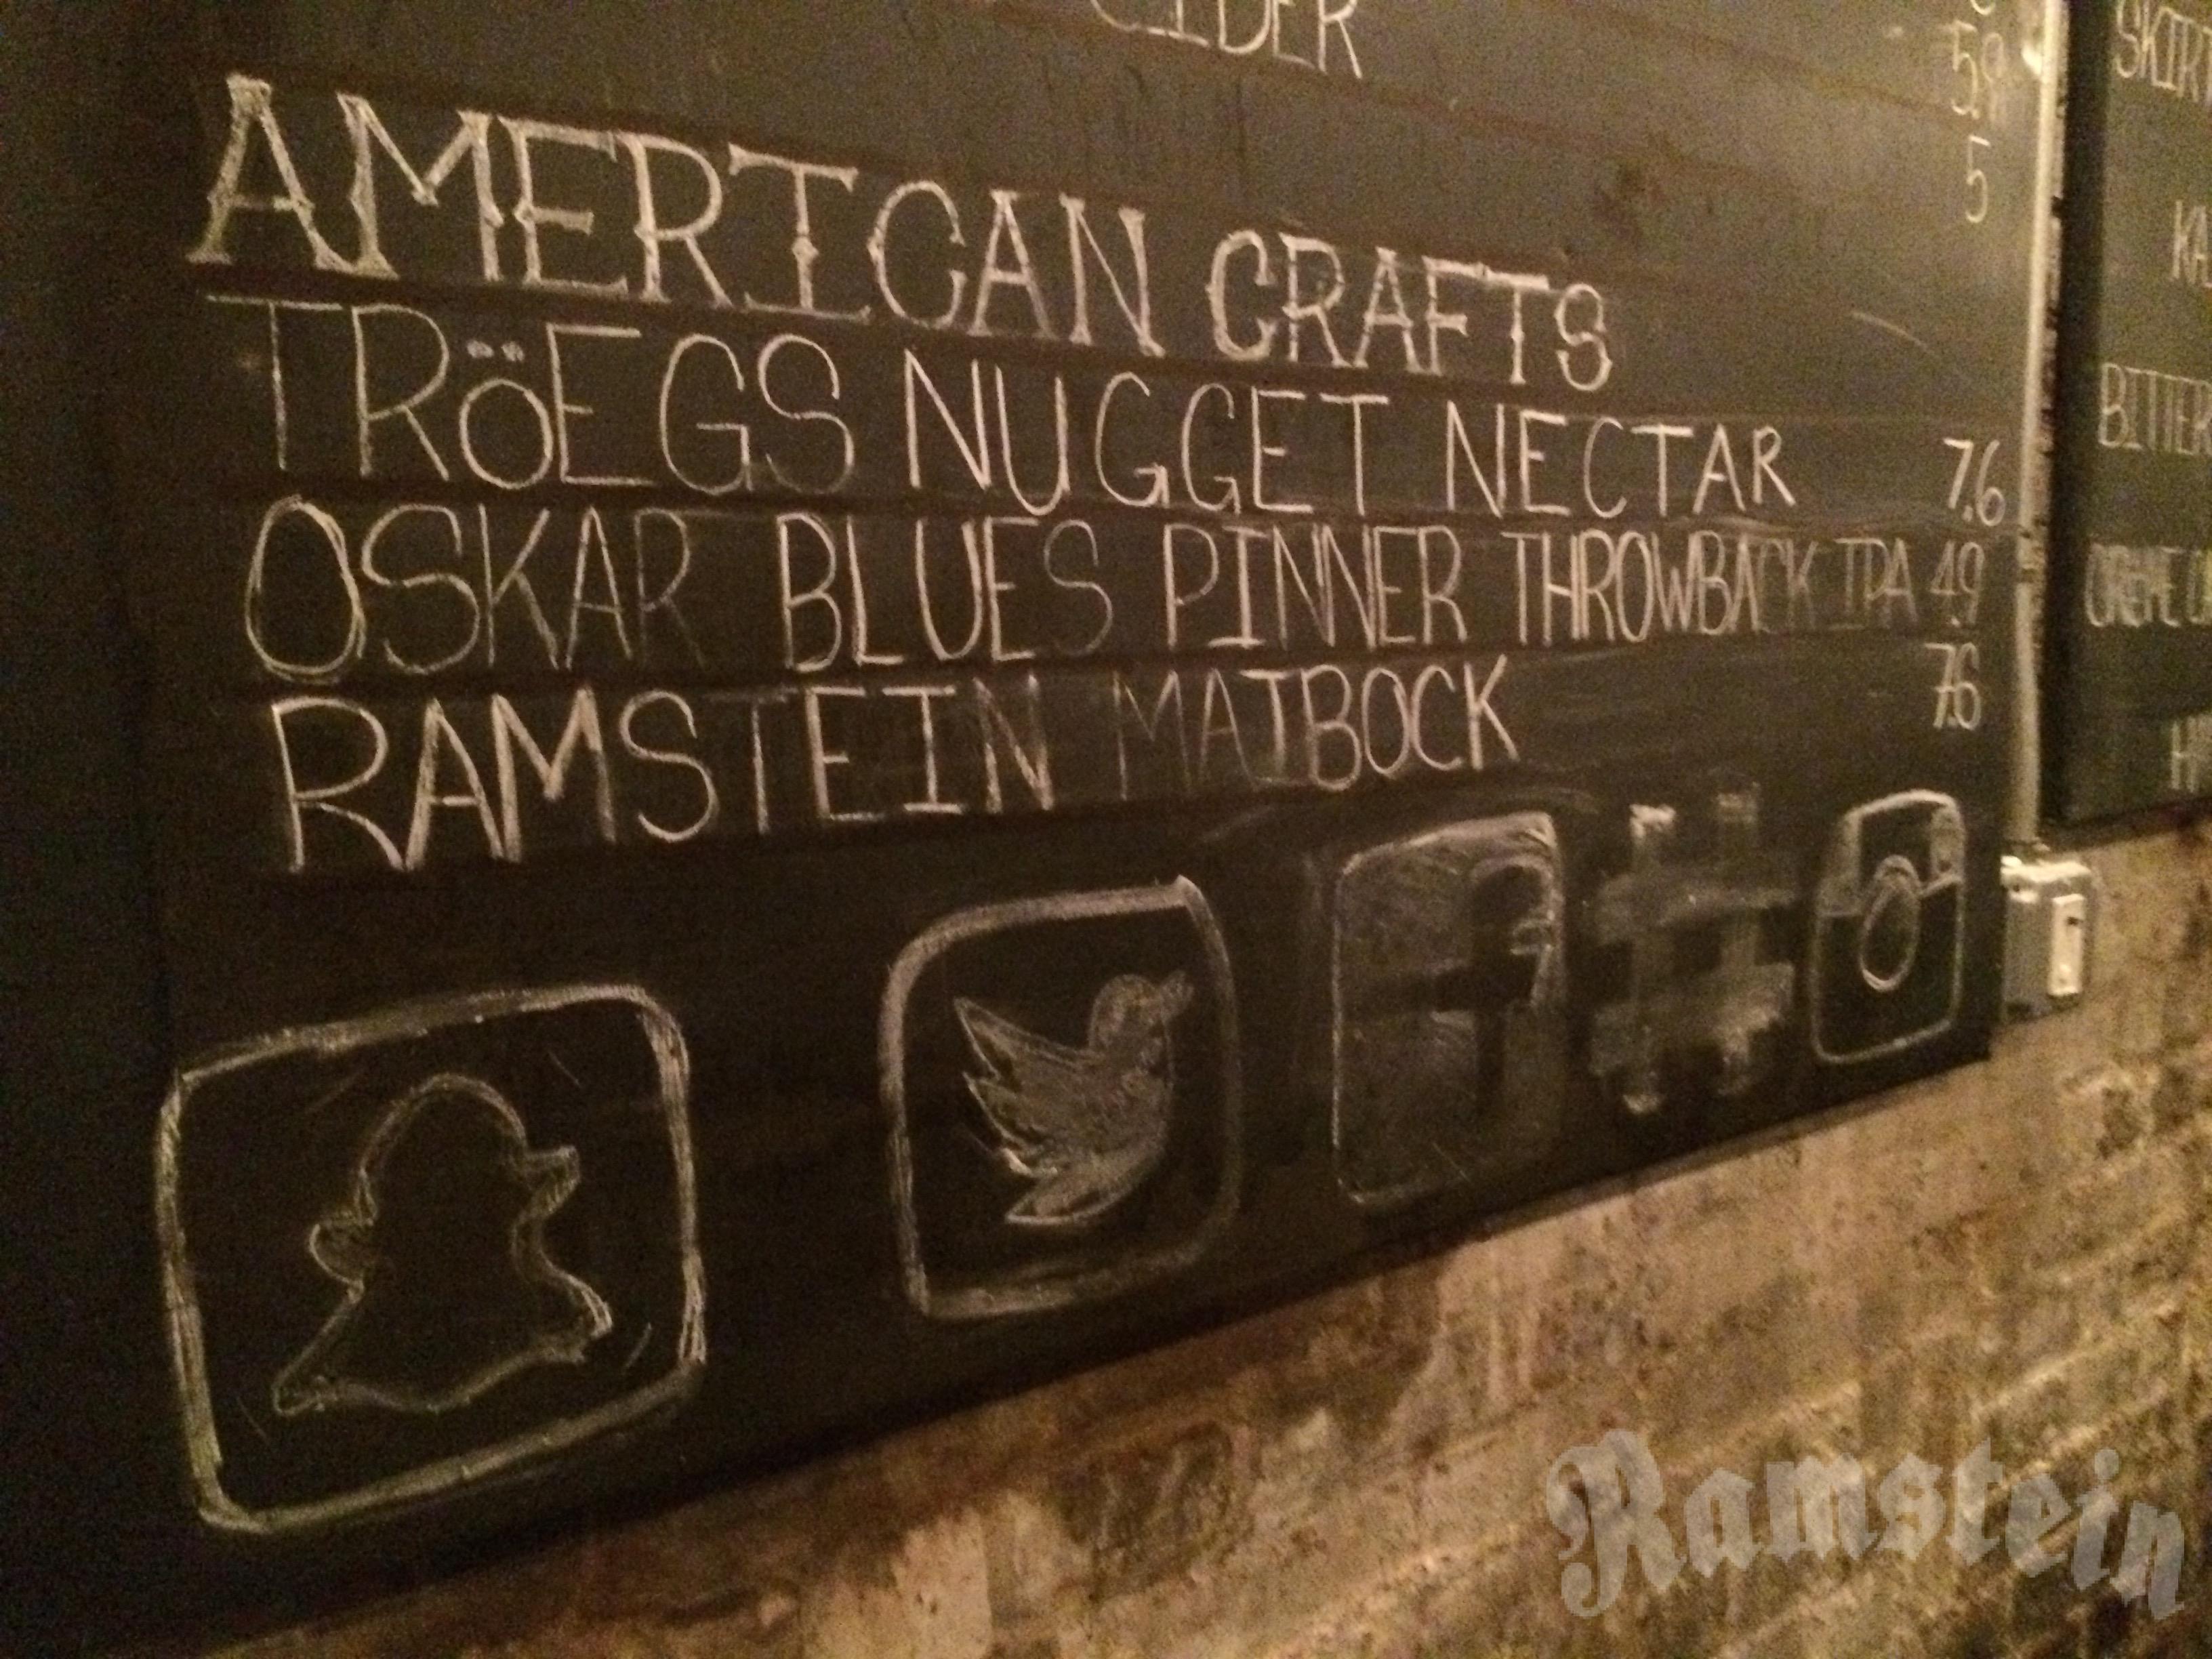 CIDER
5.9
5
AMERICAN CRAFTS
TRöEGS NUGGET NECTAR 7.6
OSKAR BLUES PINNER THROWBACK IPA 4.9
RAMSTEIN MAIBOCK 7.6
f #
BITTER
Ramstein